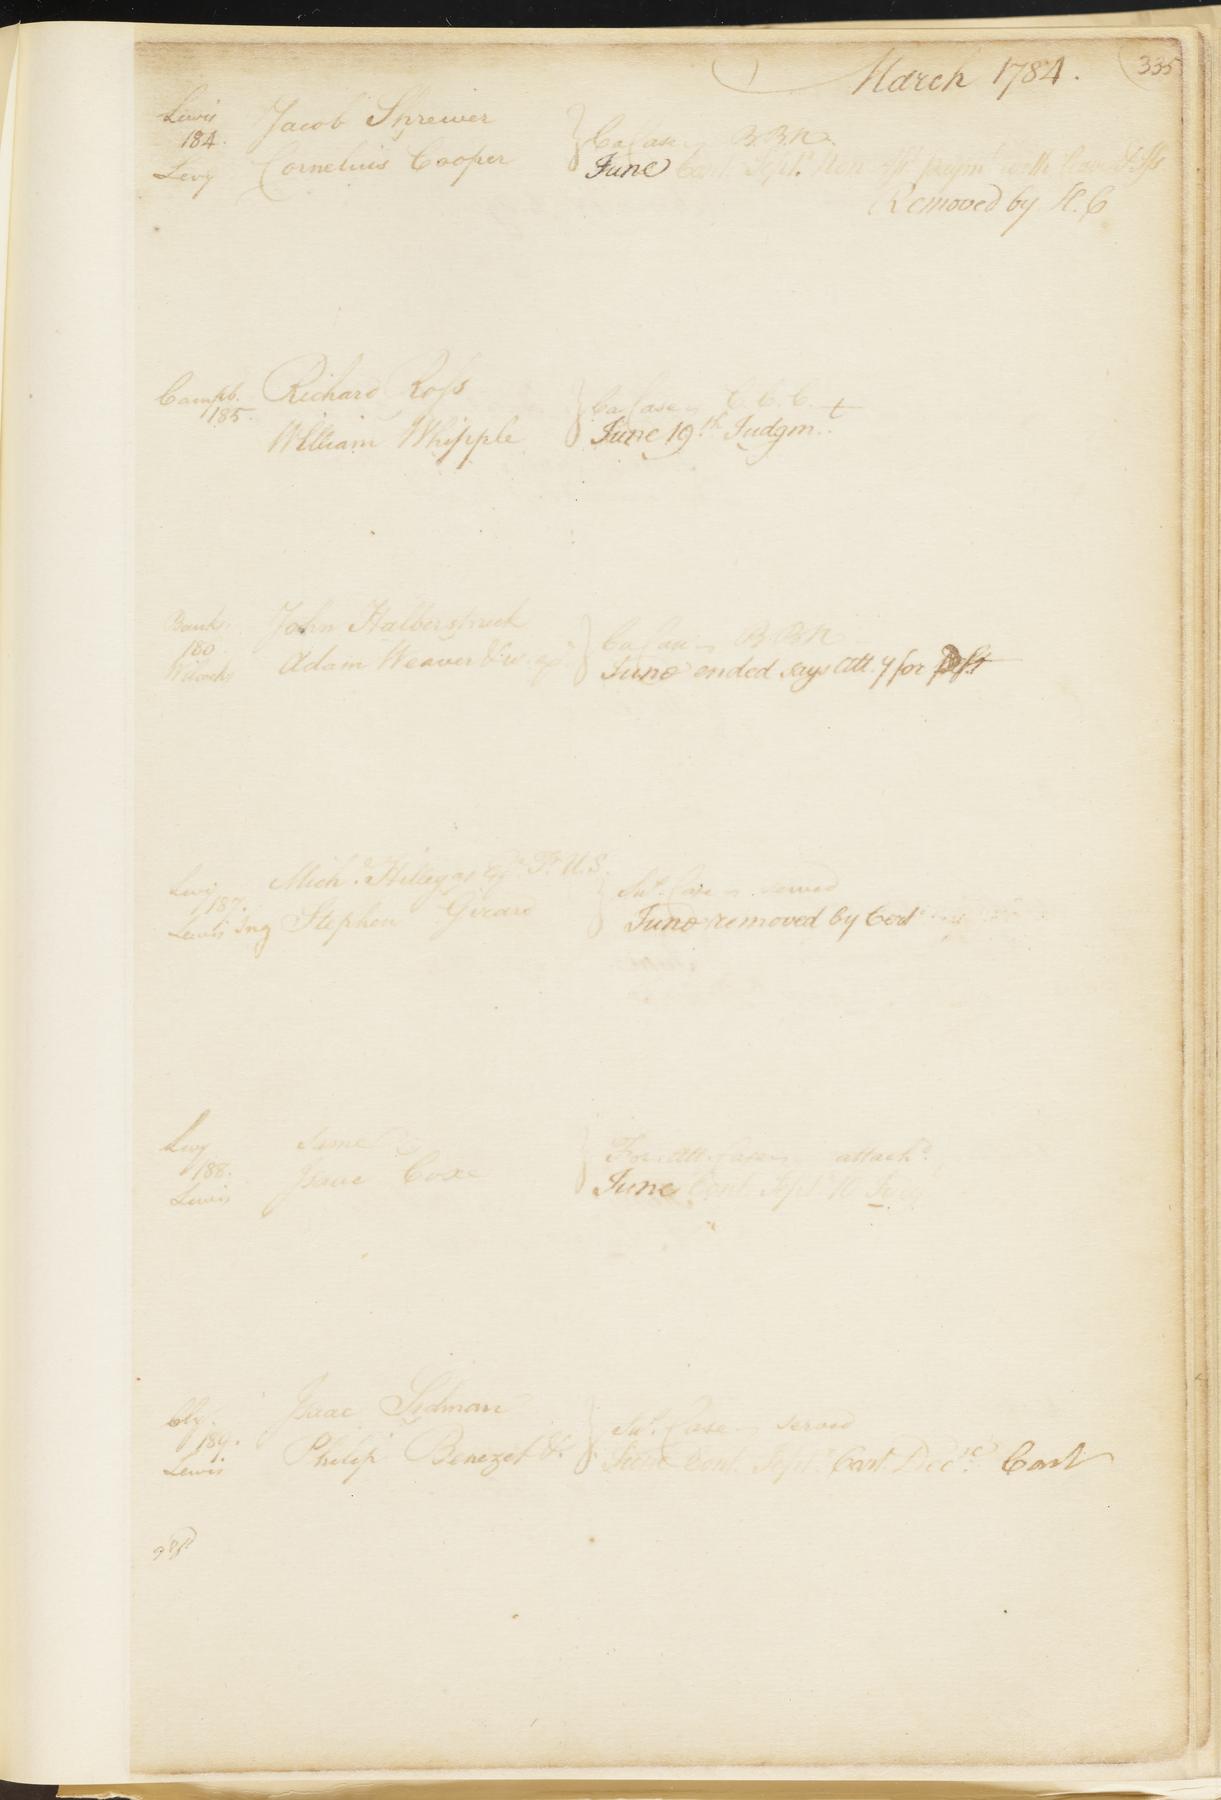 March 1784.
335
Lewis
184.
Levy
Jacob Sprewer
Cornelius Cooper
Ca Case B.B.R.
June Cont. Sept. Non
Removed by H. C
Campb.
185.
Richard Ross
William Whipple
Ca Case C.C.C.
June 19th Judgmt.
Bank.
180
Wilcocks
John Halberstruck
Adam Weaver
Ca Case B B R
June ended says Att. y for Deft
Levy
187.
Lewis Ing
Mich. Hillegas Esqr. Tr. U.S.
Stephen Girard
Case served
June removed by
Levy
188.
Lewis
Same
Isaac Coxe
For. Att. Case attachd.
June Cont. Sept
189.
Lewis
Isaac Sidman
Philip Benezet &c.
Case served
June Cont. Sept. Cont. Decr. Cont